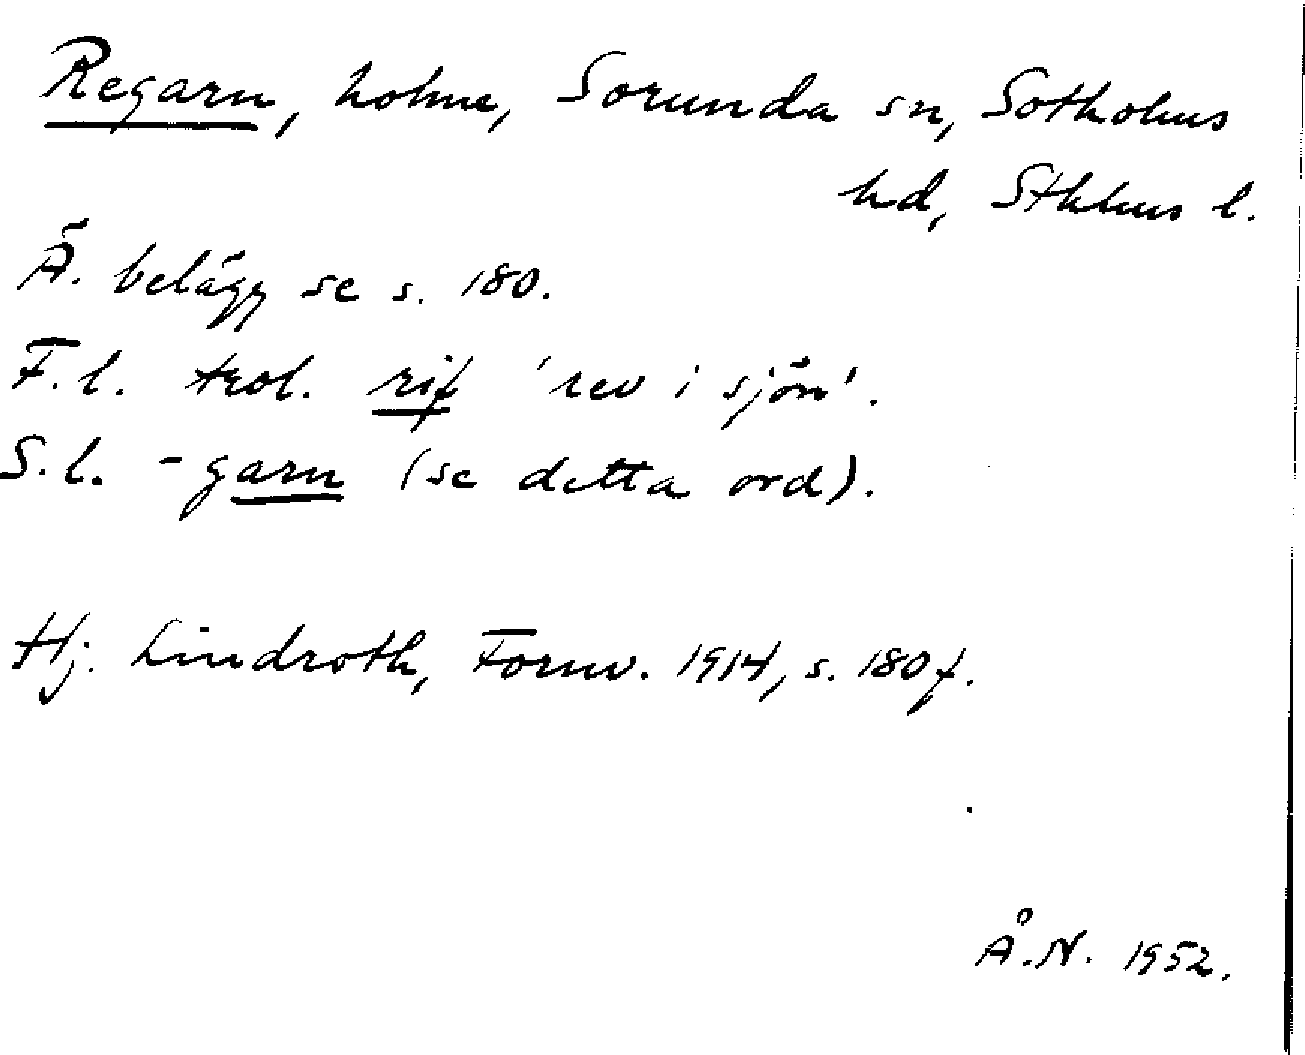 Regarn, holme, Sorunda sn, Sotholms
hd, Sthlms l.
Ä. belägg se s. 180.
F.l. trol. rif 'rev i sjön'.
S.l. -garn (se detta ord).
Hj. Lindroth, Fornv. 1914, s. 180f.
Å.N. 1952.